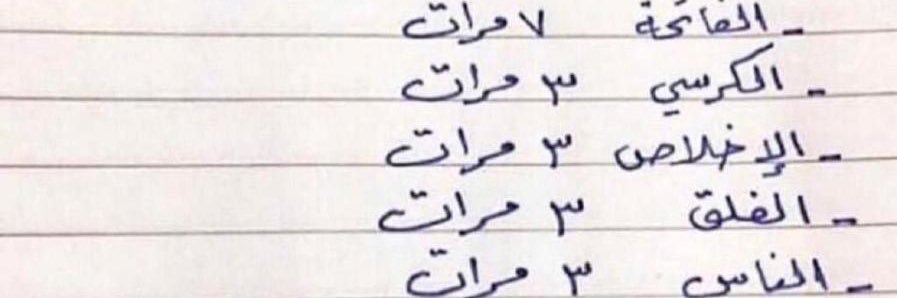 - الفاتحة ٧ مرات
- الكرسي ٣ مرات
- الإخلاص ٣ مرات
- الفلق ٣ مرات
- الناس ٣ مرات